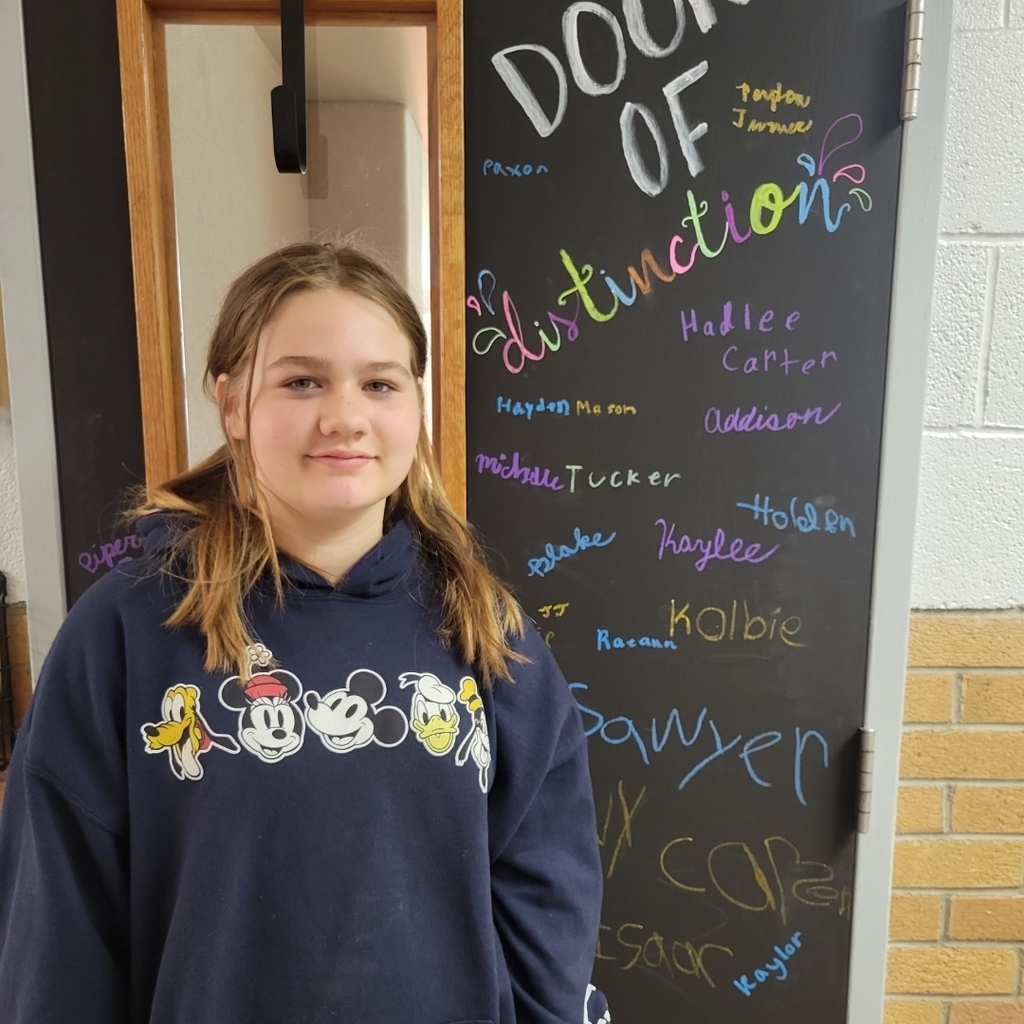 DOOR
OF
distinction
Paxon
Hadlee
Carter
Hayden Mason
Addison
Michelle Tucker
Holden
Piper
Blake
Kaylee
JJ
Kolbie
Raeann
Sawyer
Isaac
Kaylor